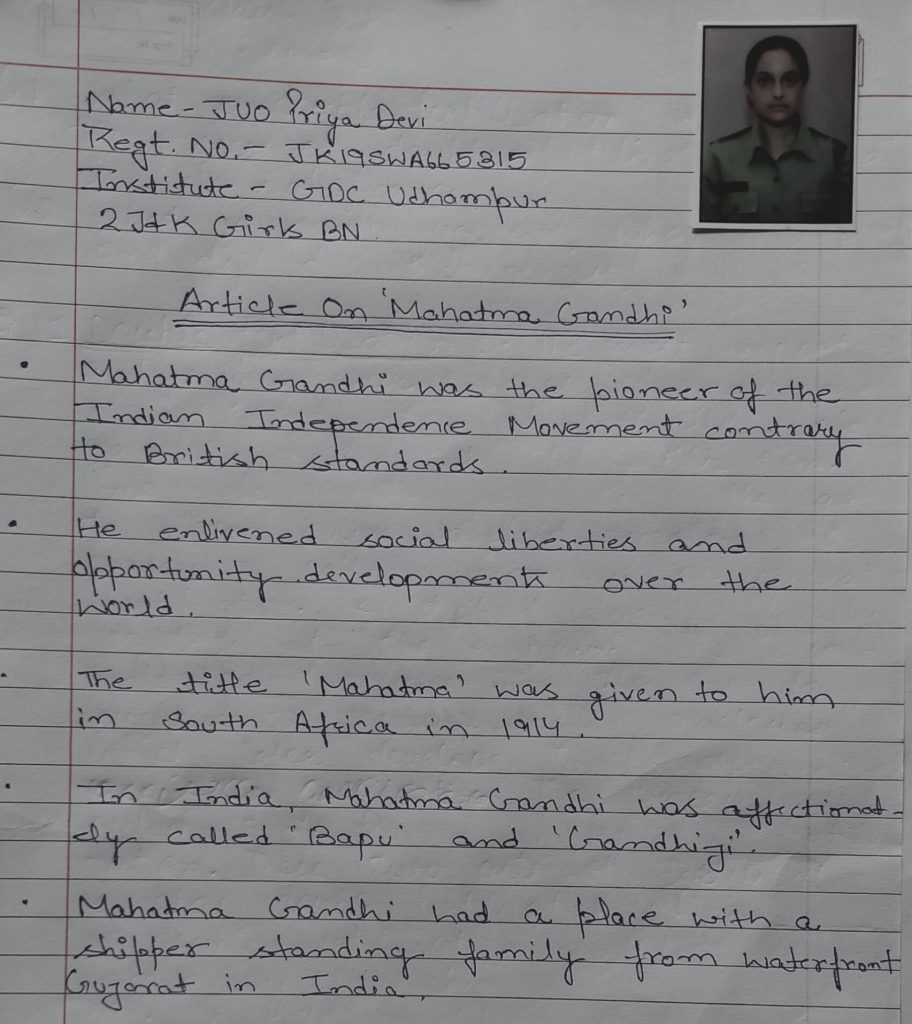 Name - JUO Priya Devi
Regt. No. - JK19SWA665815
Institute - GDC Udhampur
2 J&K Girls BN
Article On 'Mahatma Gandhi'
• Mahatma Gandhi was the pioneer of the
Indian Independence Movement contrary
to British standards.
• He enlivened social liberties and
opportunity developments over the
world.
• The title 'Mahatma' was given to him
in South Africa in 1914.
• In India, Mahatma Gandhi was affectionat-
ely called 'Bapu' and 'Gandhiji'.
• Mahatma Gandhi had a place with a
shipper standing family from waterfront
Gujarat in India.